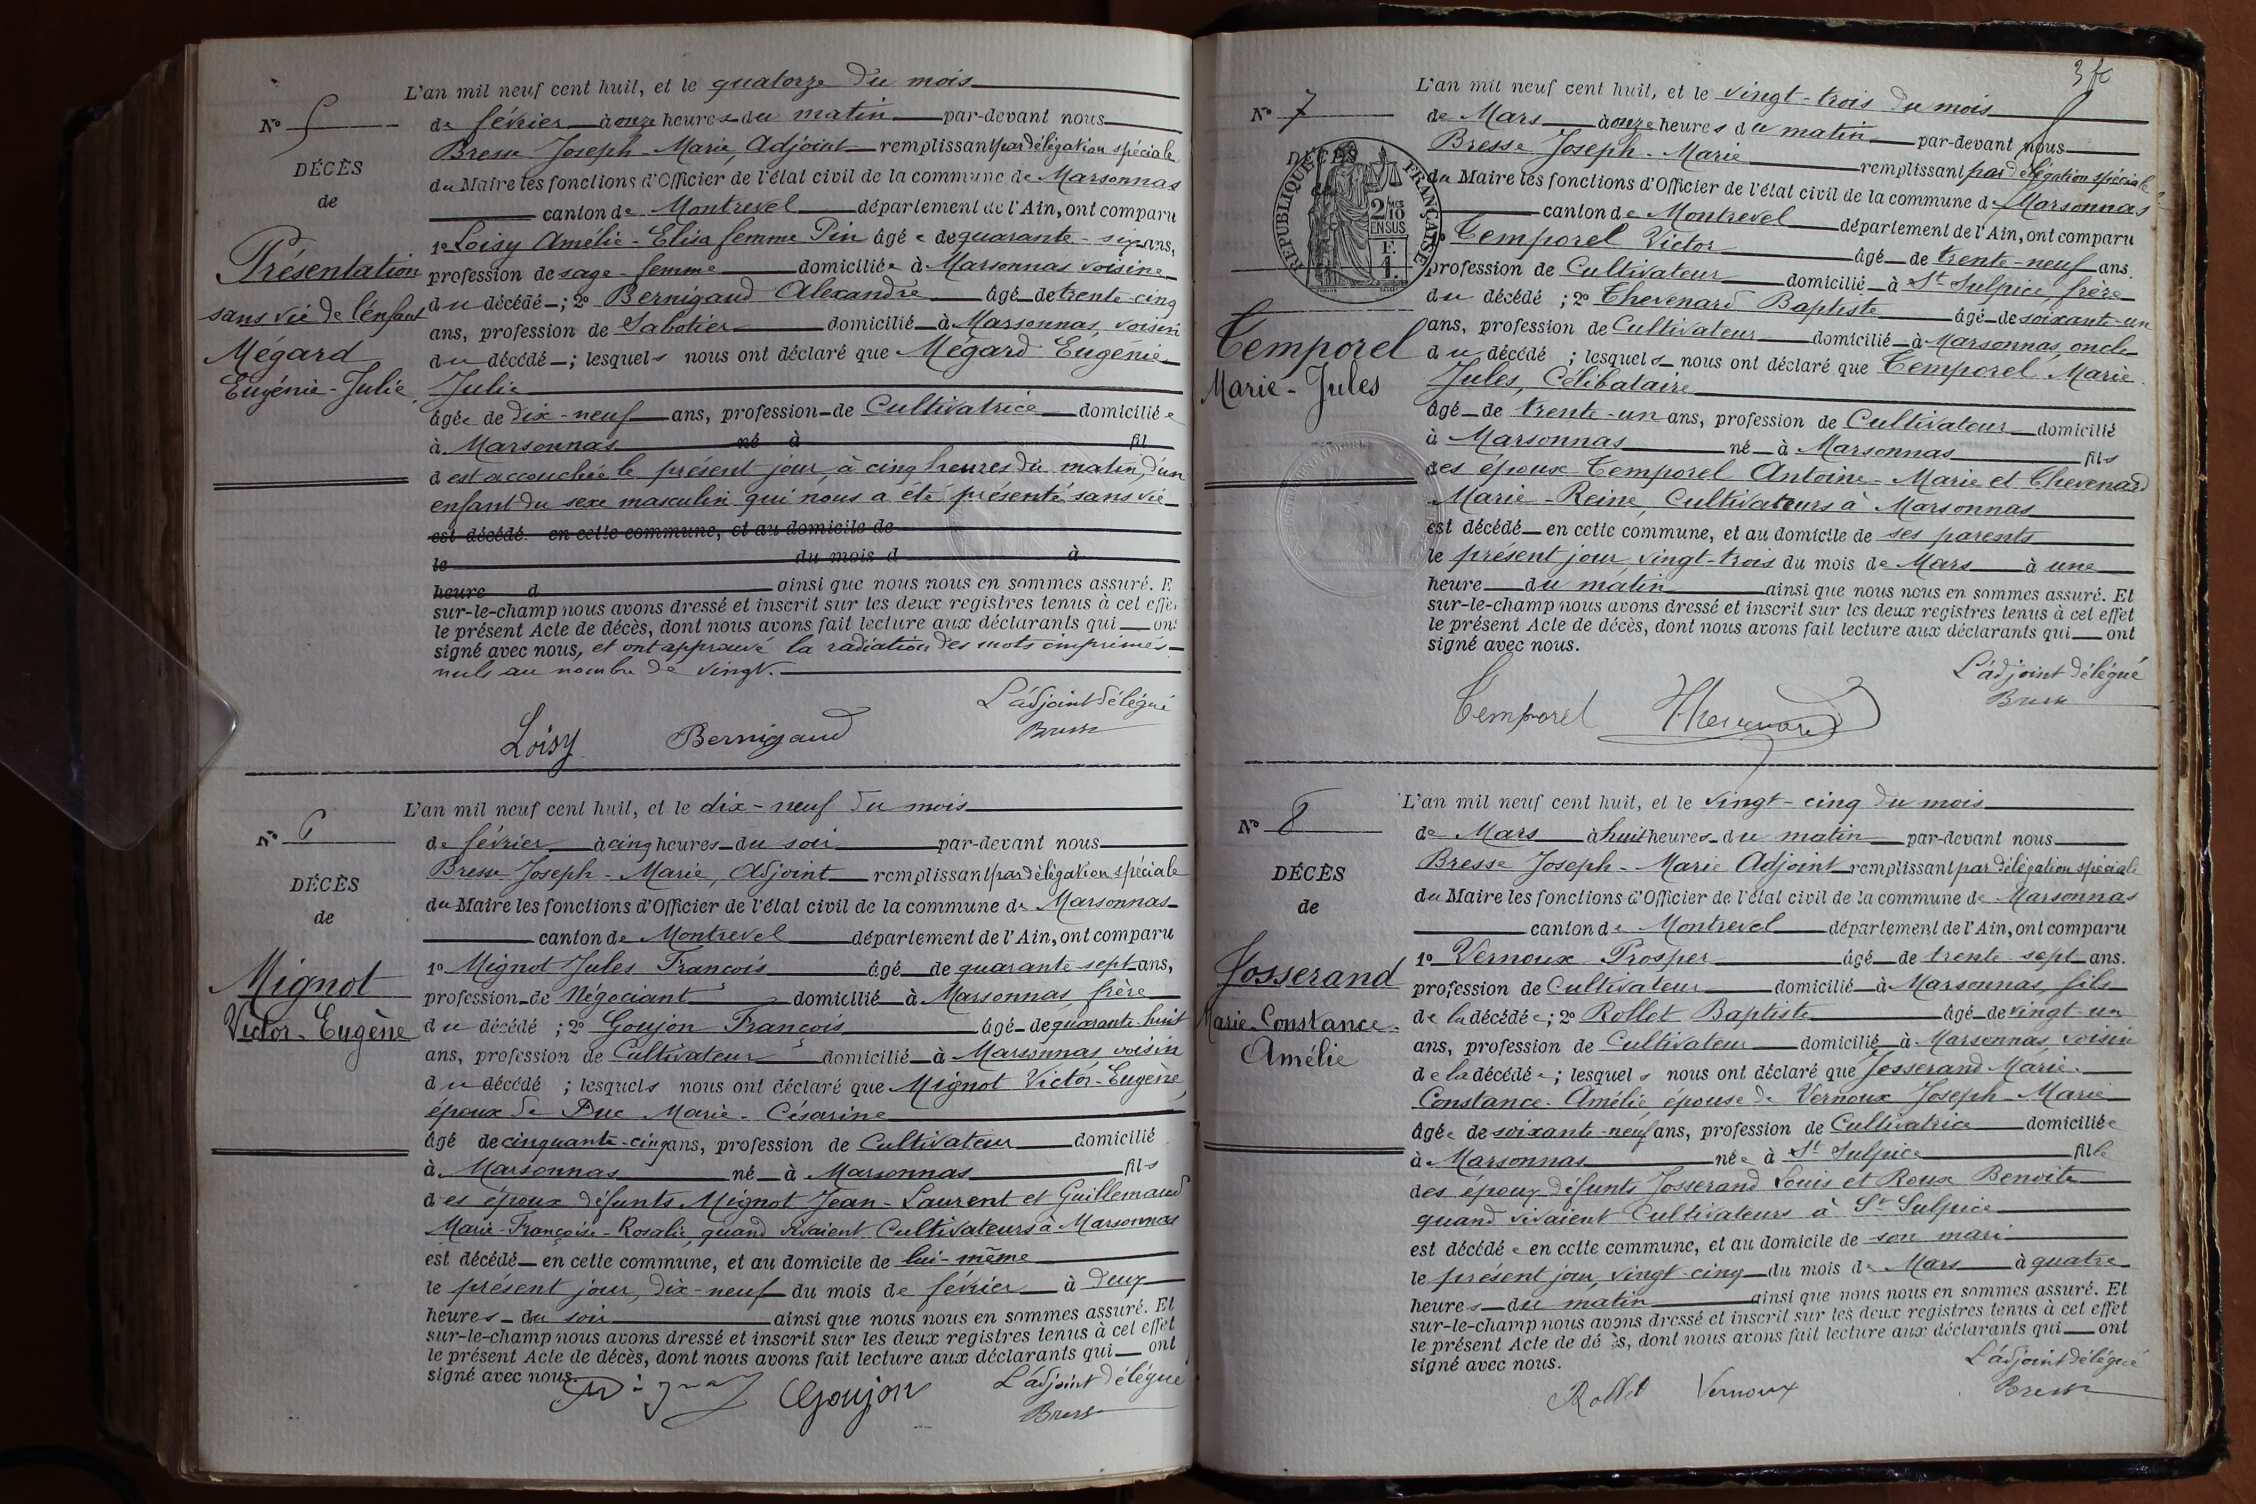 L'an mil neuf cent huit, et le quatorze du mois
N° 5
de février à onze heures du matin par-devant nous
Bresse Joseph-Marie, Adjoint remplissant par délégation spéciale
DÉCÈS
du Maire les fonctions d'Officier de l'état civil de la commune de Marsonnas
de
canton de Montrevel département de l'Ain, ont comparu
1° Loisy Amélie-Elisa femme Pin âgée de quarante-six ans,
Présentation
sans vie de l'enfant
Mégard
Eugénie-Julie
profession de sage-femme domiciliée à Marsonnas voisine
du décédé ; 2° Bernigaud Alexandre âgé de trente-cinq
ans, profession de Sabotier domicilié à Marsonnas, voisin
du décédé ; lesquels nous ont déclaré que Mégard Eugénie
Julie
âgée de dix-neuf ans, profession de Cultivatrice domiciliée
à Marsonnas né à fil
d est accouchée le présent jour, à cinq heures du matin, d'un
enfant du sexe masculin qui nous a été présenté sans vie
est décédé en cette commune, et au domicile de
le du mois d à
heure d ainsi que nous nous en sommes assuré. E
sur-le-champ nous avons dressé et inscrit sur les deux registres tenus à cet effe
le présent Acte de décès, dont nous avons fait lecture aux déclarants qui ont
signé avec nous, et ont approuvé la radiation des mots imprimés
nuls au nombre de vingt.
L'adjoint délégué
Loisy Bernigaud Bresse
L'an mil neuf cent huit, et le dix-neuf du mois
N° 6
de février à cinq heures du soir par-devant nous
Bresse Joseph-Marie, Adjoint remplissant par délégation spéciale
DÉCÈS
du Maire les fonctions d'Officier de l'état civil de la commune de Marsonnas
de
canton de Montrevel département de l'Ain, ont comparu
Mignot
Victor-Eugène
1° Mignot Jules François âgé de quarante sept ans,
profession de Négociant domicilié à Marsonnas, frère
du décédé ; 2° Goujon François âgé de quarante huit
ans, profession de Cultivateur domicilié à Marsonnas, voisin
du décédé ; lesquels nous ont déclaré que Mignot Victor-Eugène,
époux de Duc Marie-Césarine
âgé de cinquante-cinq ans, profession de Cultivateur domicilié
à Marsonnas né à Marsonnas fils
des époux défunts Mignot Jean-Laurent et Guillemaud
Marie-Françoise-Rosalie, quand vivaient Cultivateurs à Marsonnas
est décédé en cette commune, et au domicile de lui-même
le présent jour, dix-neuf du mois de février à deux
heures du soir ainsi que nous nous en sommes assuré. Et
sur-le-champ nous avons dressé et inscrit sur les deux registres tenus à cet effet
le présent Acte de décès, dont nous avons fait lecture aux déclarants qui ont
signé avec nous.
L'adjoint délégué
Goujon Bresse
L'an mil neuf cent huit, et le vingt-trois du mois
N° 7
de Mars à onze heures du matin par-devant nous
Bresse Joseph-Marie remplissant par délégation spéciale
DÉCÈS
RÉPUBLIQUE FRANÇAISE
2/10
EN SUS
du Maire les fonctions d'Officier de l'état civil de la commune de Marsonnas
canton de Montrevel département de l'Ain, ont comparu
Temporel Victor âgé de trente-neuf ans.
profession de Cultivateur domicilié à St Sulpice frère
Temporel
Marie-Jules
du décédé ; 2° Thevenard Baptiste âgé de soixante-un
ans, profession de Cultivateur domicilié à Marsonnas, oncle
du décédé ; lesquels nous ont déclaré que Temporel Marie
Jules, Célibataire
âgé de trente-un ans, profession de Cultivateur domicilié
à Marsonnas né à Marsonnas fils
des époux Temporel Antoine-Marie et Thevenard
Marie-Reine, Cultivateurs à Marsonnas
est décédé en cette commune, et au domicile de ses parents
le présent jour, vingt-trois du mois de Mars à une
heure du matin ainsi que nous nous en sommes assuré. Et
sur-le-champ nous avons dressé et inscrit sur les deux registres tenus à cet effet
le présent Acte de décès, dont nous avons fait lecture aux déclarants qui ont
signé avec nous.
L'adjoint délégué
Temporel Thevenard Bresse
L'an mil neuf cent huit, et le vingt-cinq du mois
N° 8
de Mars à huit heures du matin par-devant nous
Bresse Joseph-Marie Adjoint remplissant par délégation spéciale
DÉCÈS
du Maire les fonctions d'Officier de l'état civil de la commune de Marsonnas
de
canton de Montrevel département de l'Ain, ont comparu
Josserand
Marie-Constance-
Amélie
1° Vernoux Prosper âgé de trente-sept ans.
profession de Cultivateur domicilié à Marsonnas, fils
de la décédée ; 2° Rollet Baptiste âgé de vingt-un
ans, profession de Cultivateur domicilié à Marsonnas, voisin
de la décédée ; lesquels nous ont déclaré que Josserand Marie-
Constance-Amélie épouse de Vernoux Joseph-Marie
âgée de soixante-neuf ans, profession de Cultivatrice domiciliée
à Marsonnas née à St Sulpice fille
des époux défunts Josserand Louis et Roux Benoite
quand vivaient Cultivateurs à St Sulpice
est décédée en cette commune, et au domicile de son mari
le présent jour, vingt-cinq du mois de Mars à quatre
heures du matin ainsi que nous nous en sommes assuré. Et
sur-le-champ nous avons dressé et inscrit sur les deux registres tenus à cet effet
le présent Acte de dé ès, dont nous avons fait lecture aux déclarants qui ont
signé avec nous.
L'adjoint délégué
Rollet Vernoux Bresse